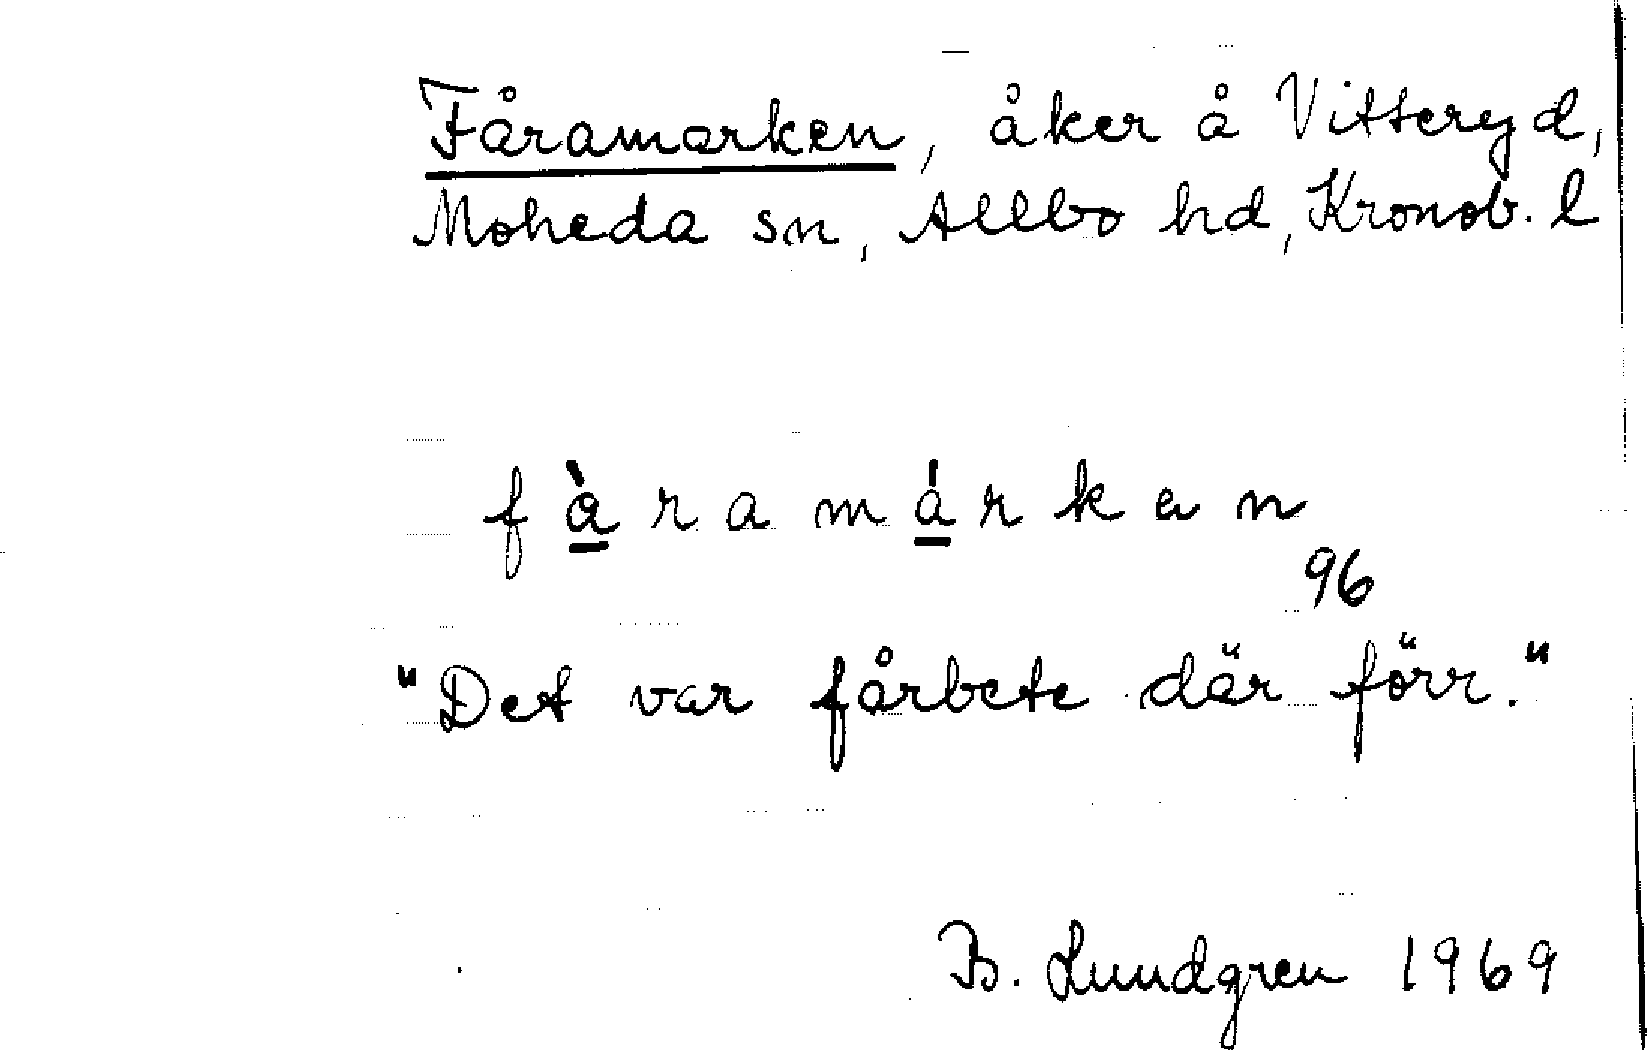 Fåramarken, åker å Vitteryd,
Moheda sn, Allbo hd, Kronob. l
fàramárkan
96
"Det var fårbete där förr."
B. Lundgren 1969